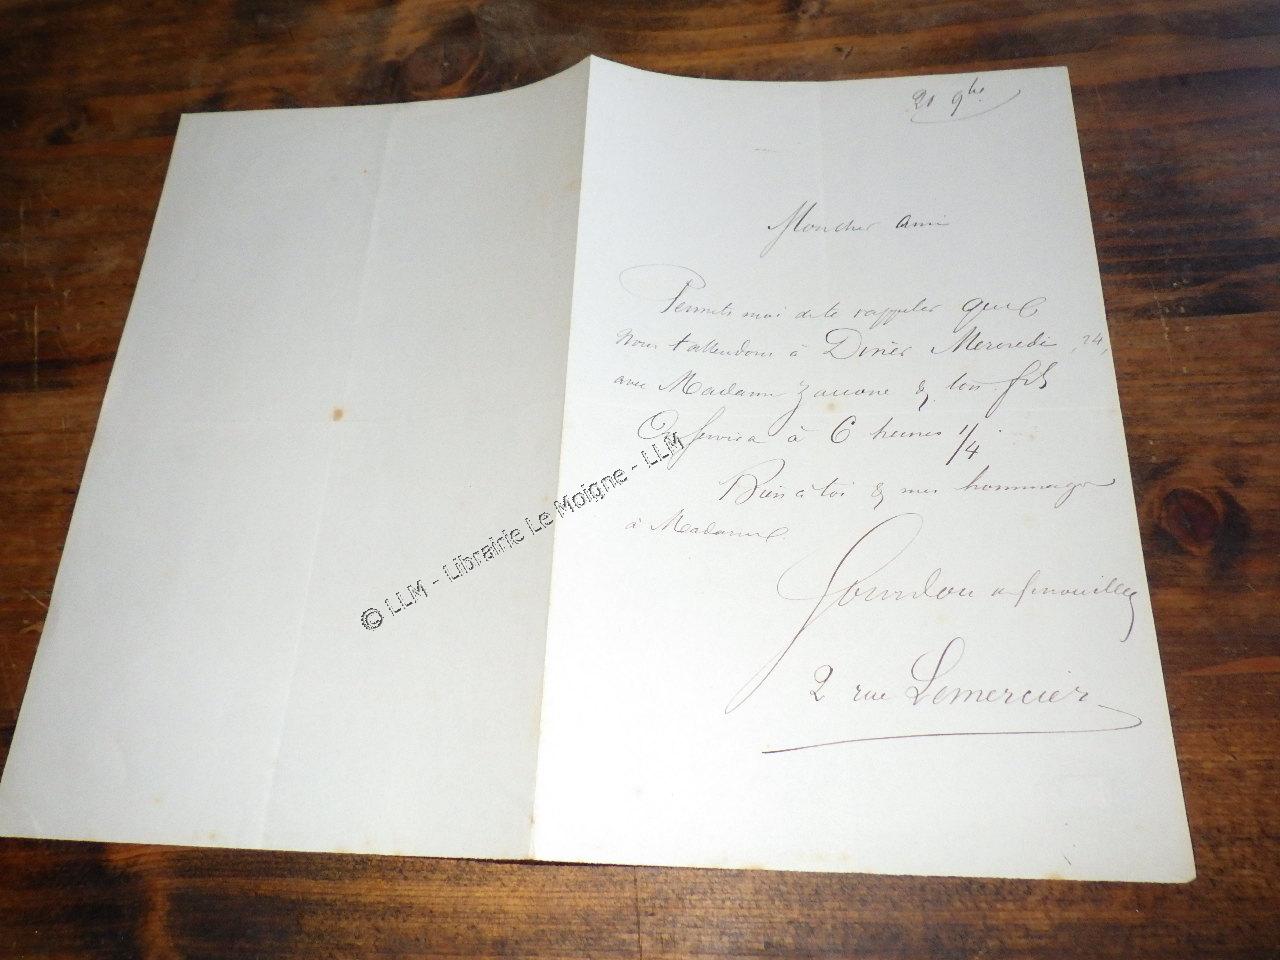 21 9bre
Mon cher ami
Permets moi de te rappeler que
nous t'attendons à Dîner Mercredi 24,
avec Madame Zaccone & ton fils
On servira à 6 heures 1/4
Bien à toi & mes hommages
à Madame
Gourdon de Genouillac
2 rue Lemercier
© LLM - Librairie Le Moigne - LLM